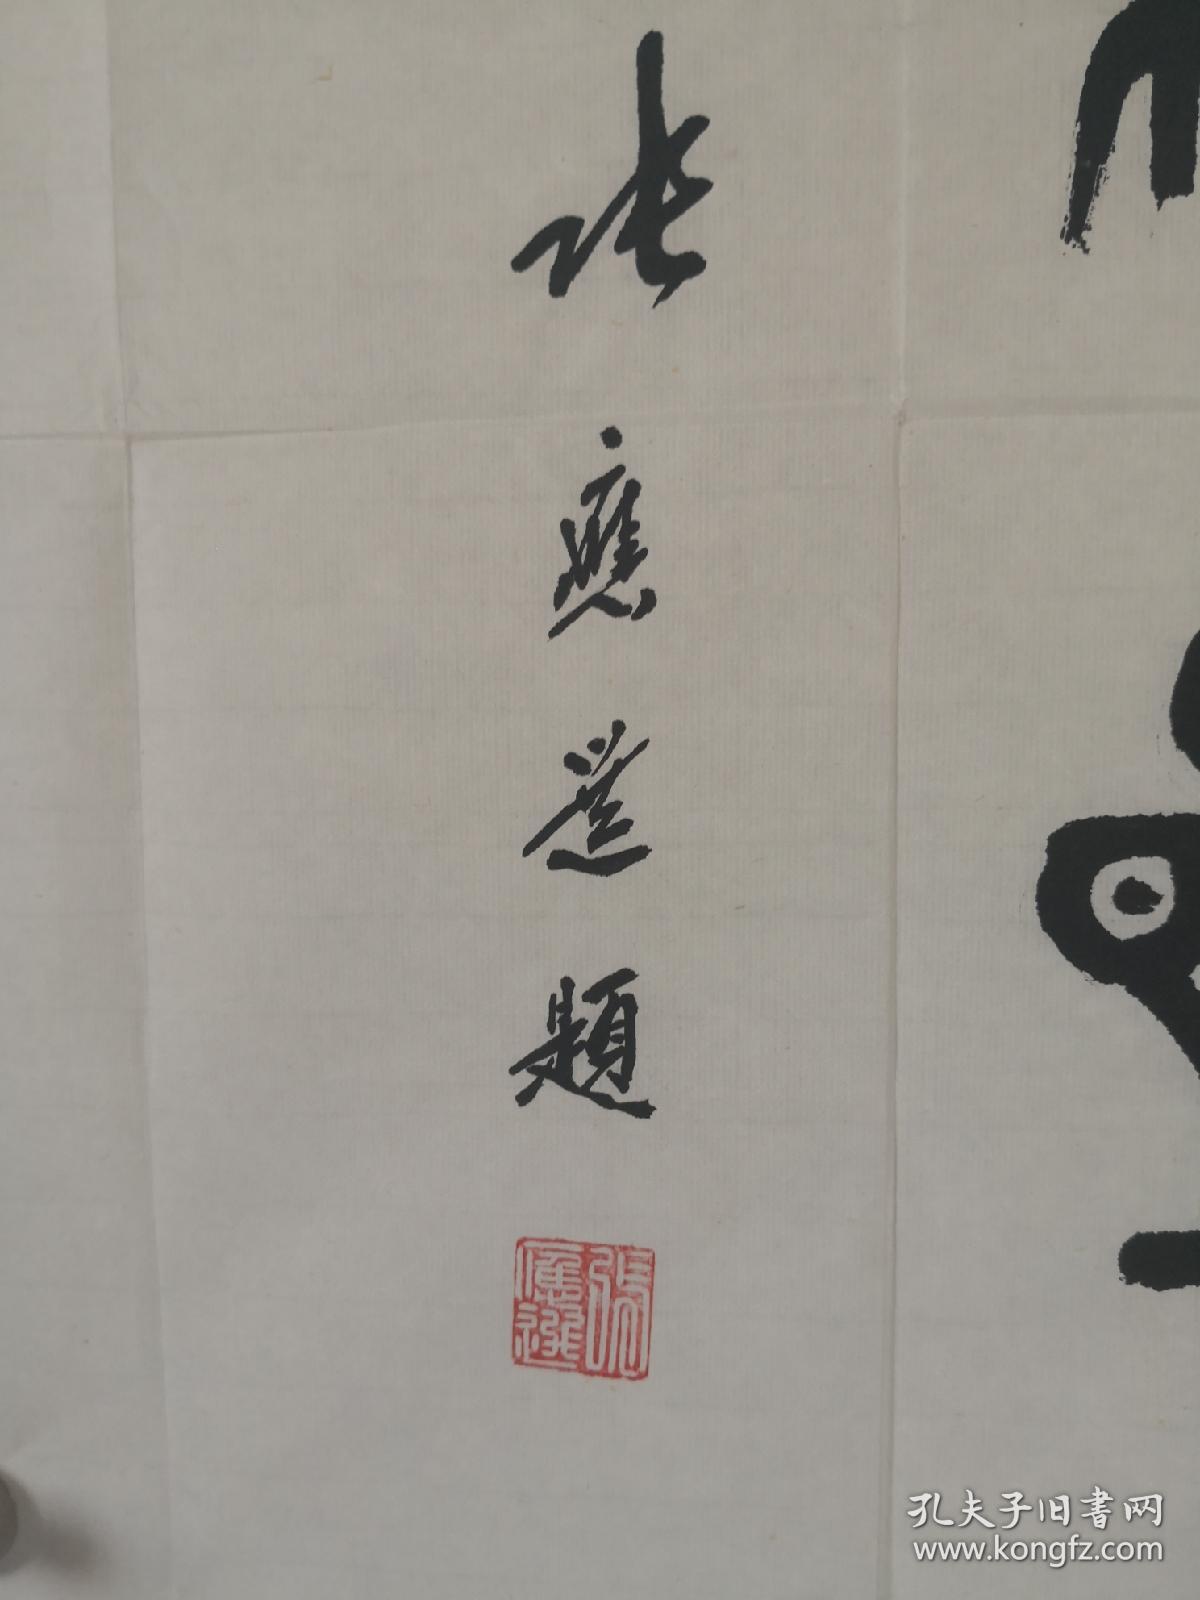 张應選題
張應選
孔夫子旧书网
www.kongfz.com